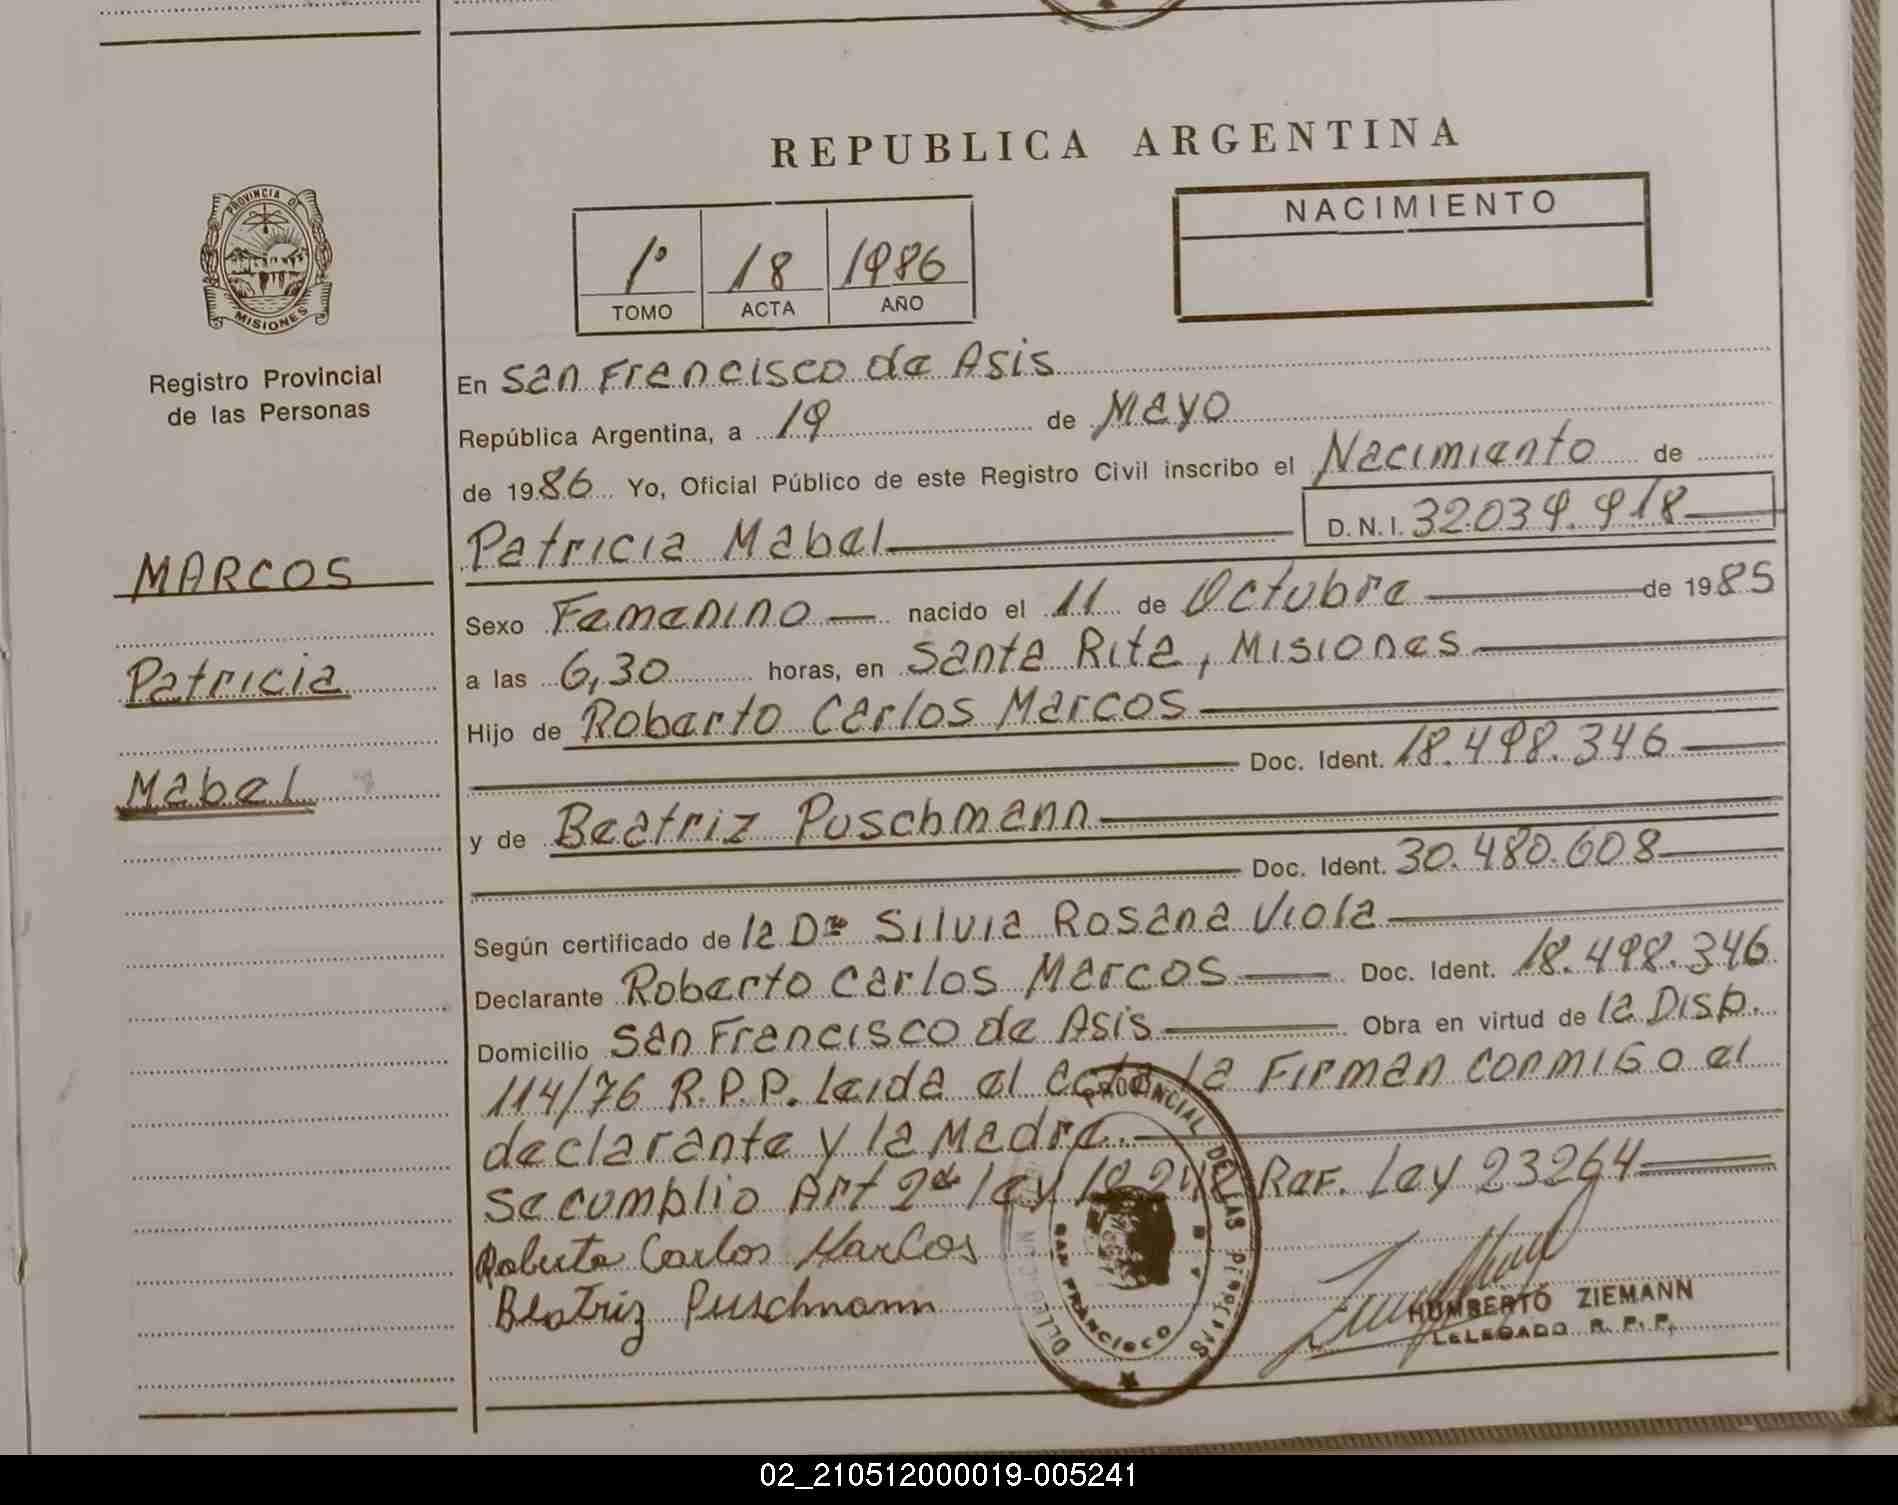 REPUBLICA ARGENTINA
PROVINCIA DE
MISIONES
Registro Provincial
de las Personas
MARCOS
Patricia
Mabel
1º 18 1986
TOMO ACTA AÑO
NACIMIENTO
En San Francisco de Asis
República Argentina, a 19 de Mayo
de 1986 Yo, Oficial Público de este Registro Civil inscribo el Nacimiento de
Patricia Mabel D.N.I. 32.039.918
Sexo Femenino nacido el 11 de Octubre de 1985
a las 6,30 horas, en Santa Rita, Misiones
Hijo de Roberto Carlos Marcos
Doc. Ident. 18.498.346
y de Beatriz Puschmann
Doc. Ident. 30.480.608
Según certificado de la Dra Silvia Rosana Viola
Declarante Roberto Carlos Marcos Doc. Ident. 18.498.346
Domicilio San Francisco de Asis Obra en virtud de la Disp.
114/76 R.P.P. Leida el acta la Firman conmigo el
declarante y la Madre.
Se cumplio Art 2do ley 18.248 Ref. Ley 23264
Roberto Carlos Marcos
Beatriz Puschmann
PROVINCIAL DE LAS PERSONAS
SAN FRANCISCO
HUMBERTO ZIEMANN
DELEGADO R. P. P.
02_210512000019-005241